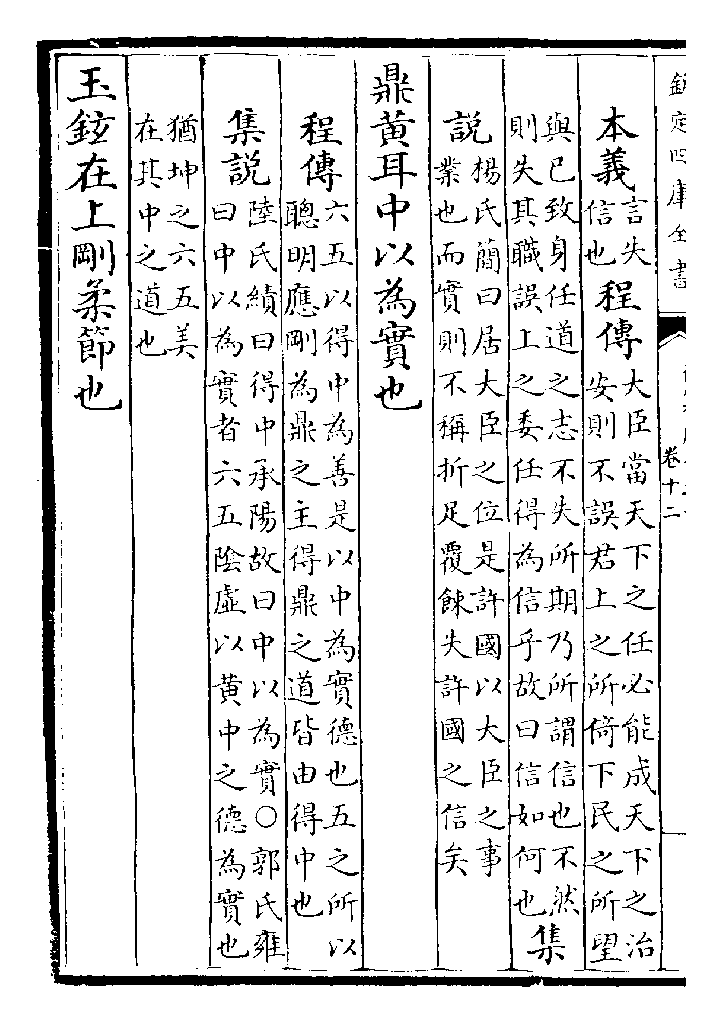 欽定四庫全書
卷十二
本義言失信也程傳大臣當天下之任必能成天下之治安則不誤君上之所倚下民之所望
與已致身任道之志不失所期乃所謂信也不然則失其職誤上之委任得為信乎故曰信如何也集
説楊氏簡曰居大臣之位是許國以大臣之事業也而實則不稱折足覆餗失許國之信矣
鼎黄耳中以為實也
程傳六五以得中為善是以中為實德也五之所以聰明應剛為鼎之主得鼎之道皆由得中也
集説陸氏績曰得中承陽故曰中以為實○郭氏雍曰中以為實者六五陰虚以黄中之德為實也
猶坤之六五美在其中之道也
玉鉉在上剛柔節也